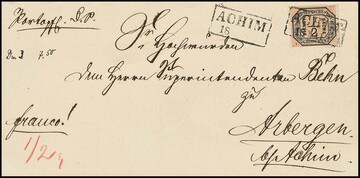 Portopfl. D.S.
ACHIM
18
ACHIM
18 2
Sr. Hochwürden
dem Herrn Superintendenten Behn
zu
franco!
Arbergen
b/Achim.